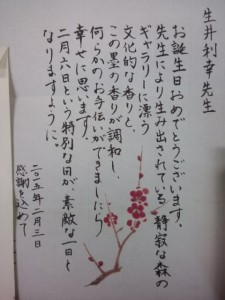 生井利幸先生
お誕生日おめでとうございます。
先生により生み出されている静寂な森の
ギャラリーに漂う
文化的な香りと、
この墨の香りが調和し、
何らかのお手伝いができましたら
幸せに思います。
二月六日という特別な日が、素敵な一日と
なりますように。
二〇一五年二月三日
感謝を込めて